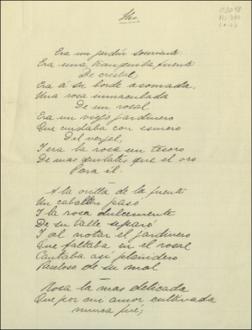 Era un jardín sonriente
Era una tranquila fuente
De cristal,
Era a su borde asomada
Una rosa inmaculada
De un rosal
Era un viejo jardinero
Que cuidaba con esmero
Del vergel,
Y era la rosa un tesoro
De mas quilates que el oro
Para él.
A la orilla de la fuente
Un caballero pasó
Y la rosa dulcemente
De su tallo separó
Y al notar el jardinero
Que faltaba en el rosal
Cantaba así plañidero
Receloso de su mal
Rosa la más delicada
Que por mi amor cultivada
nunca fué;